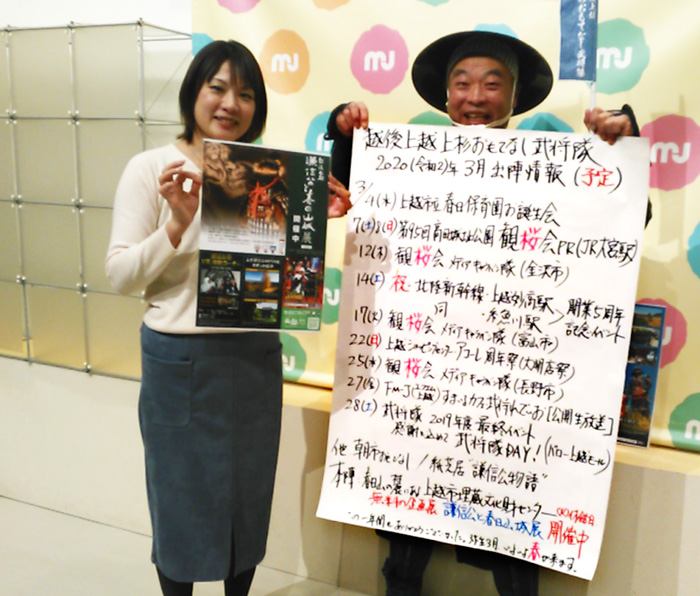 越後上越上杉おもてなし武将隊
2020(令和2)年3月出陣情報(予定)
3/4(水)上越市立春日保育園お誕生会
7(土)8(日)第95回高田城址公園観桜会PR(JR大宮駅)
12(木)観桜会メディアキャラバン隊(金沢市)
14(土)祝・北陸新幹線・上越妙高駅>開業5周年
同・糸魚川駅 記念イベント
17(火)観桜会メディアキャラバン隊(富山市)
22(日)上越ショッピングセンターアコーレ周年祭(大開店祭)
25(水)観桜会メディアキャラバン隊(長野市)
27(金)FM-J(上越)
武将れでぃお[公開生放送]
28(土)武将隊2019年度最終イベント
感謝を込めて武将隊DAY!(バロー上越モール)
他 朝市おもてなし/紙芝居"謙信公物語"
本陣 春日山の麓 上越市埋蔵文化財センター
無料の企画展 謙信公と春日山城展 開催中
この一年間もありがとうございました。弥生3月
春が来ます。
謙信公と春日山城展
開催中
mu
mu
mu